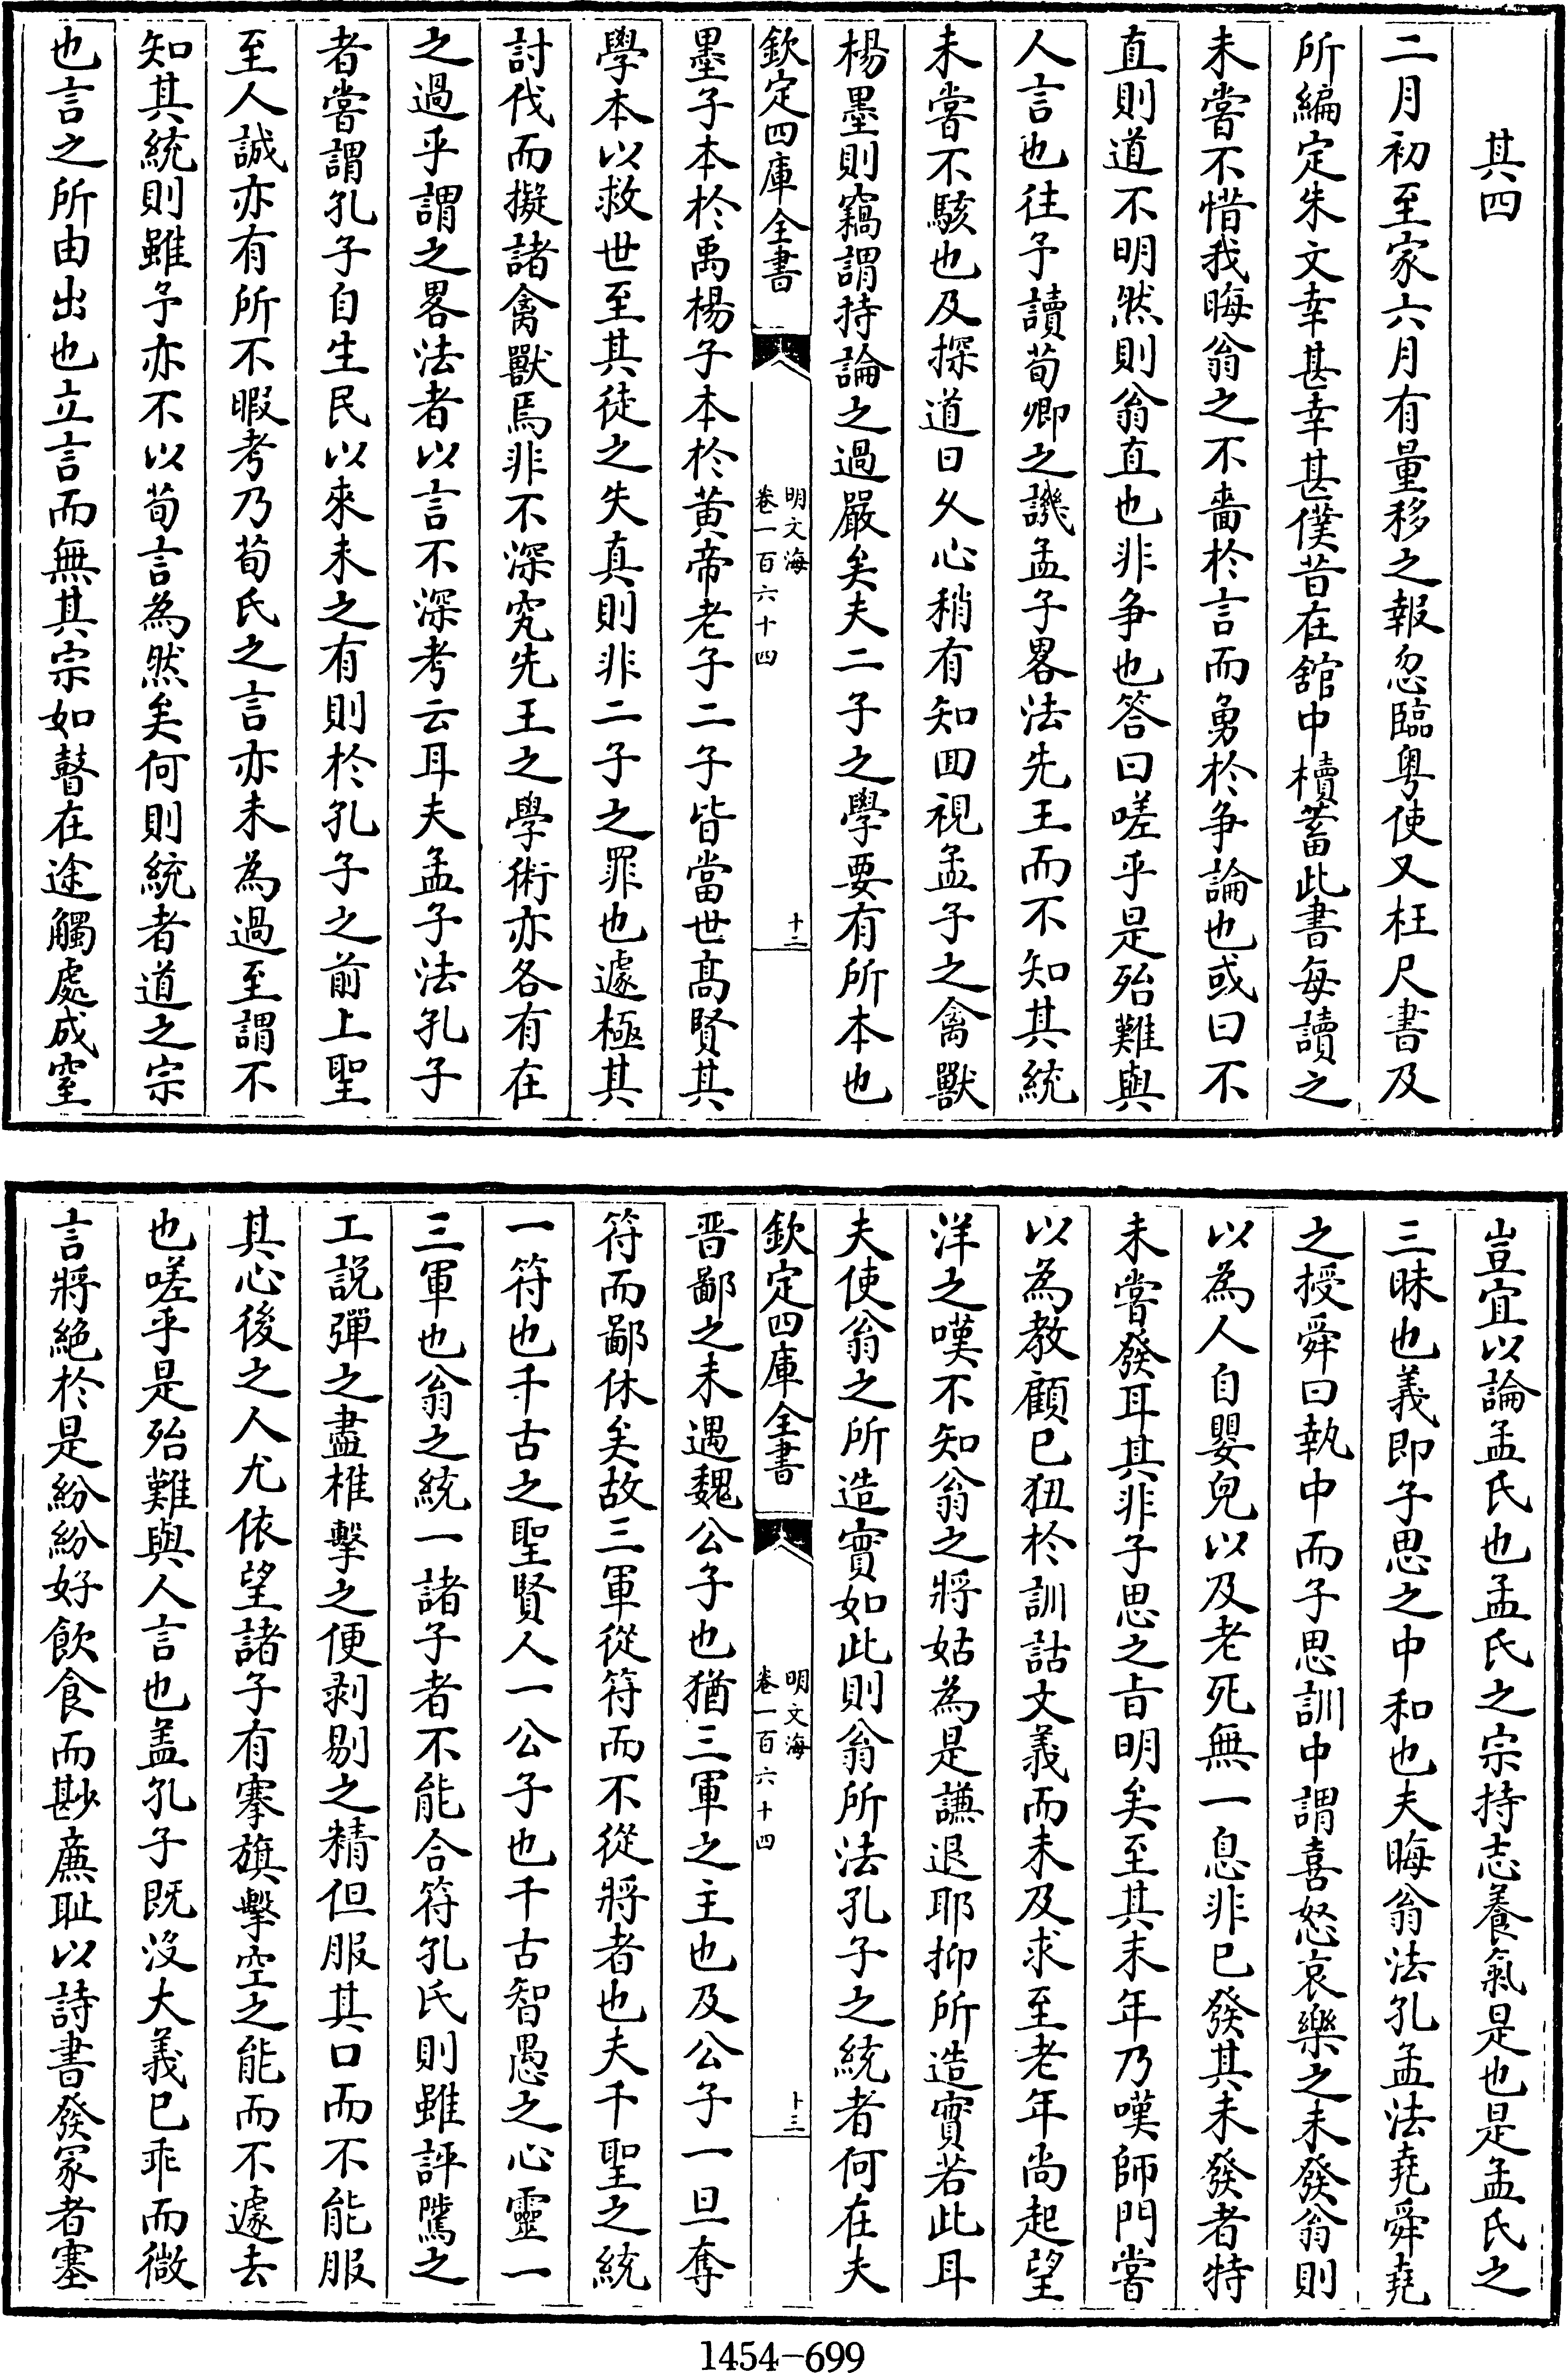 其四
二月初至家六月有量移之報忽臨粤使又枉尺書及
所編定朱文幸甚幸甚僕昔在舘中櫝蓄此書每讀之
未嘗不惜我晦翁之不嗇於言而勇於争論也或曰不
直則道不明然則翁直也非争也答曰嗟乎是殆難與
人言也往予讀荀卿之譏孟子畧法先王而不知其統
未嘗不駭也及探道日久心稍有知回視孟子之禽獸
楊墨則竊謂持論之過嚴矣夫二子之學要有所本也
欽定四庫全書
明文海
卷一百六十四
十二
墨子本於禹楊子本於黄帝老子二子皆當世高賢其
學本以救世至其徒之失真則非二子之罪也遽極其
討伐而擬諸禽獸焉非不深究先王之學術亦各有在
之過乎謂之畧法者以言不深考云耳夫孟子法孔子
者嘗謂孔子自生民以來未之有則於孔子之前上聖
至人誠亦有所不暇考乃荀氏之言亦未為過至謂不
知其統則雖予亦不以荀言為然矣何則統者道之宗
也言之所由出也立言而無其宗如瞽在途觸處成窒
豈宜以論孟氏也孟氏之宗持志養氣是也是孟氏之
三昧也義即子思之中和也夫晦翁法孔孟法堯舜堯
之授舜曰執中而子思訓中謂喜怒哀樂之未發翁則
以為人自嬰兒以及老死無一息非已發其未發者特
未嘗發耳其非子思之㫖明矣至其末年乃嘆師門嘗
以為教顧已狃於訓詁文義而未及求至老年尚起望
洋之嘆不知翁之將姑為是謙退耶抑所造實若此耳
夫使翁之所造實如此則翁所法孔子之統者何在夫
欽定四庫全書
明文海
卷一百六十四
十三
晋鄙之未遇魏公子也猶三軍之主也及公子一旦奪
符而鄙休矣故三軍從符而不從將者也夫千聖之統
一符也千古之聖賢人一公子也千古智愚之心靈一
三軍也翁之統一諸子者不能合符孔氏則雖評隲之
工説彈之盡椎擊之便剥剔之精但服其口而不能服
其心後之人尤依望諸子有搴旗擊空之能而不遽去
也嗟乎是殆難與人言也盖孔子既没大義已乖而微
言將絶於是紛紛好飲食而尠廉耻以詩書發冡者塞
1454-699